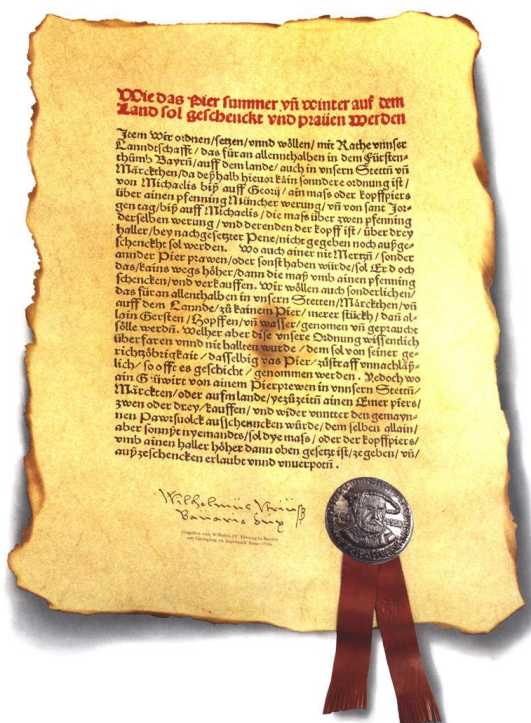 Wie das Pier summer vñ winter auf dem
Land sol geschenckt vnd praüen werden
Item Wir ordnen/setzen/vnnd wöllen/mit Rathe vnnser
Lanndtschafft/das füran allennthalben in dem Fürsten-
thůmb Bayrn/auff dem lande/auch in vnsern Stettñ vñ
Märckthen/da deßhalb hieuor kain sonndere ordnung ist/
von Michaelis biß auff Georij/ain mass oder kopffpiers
über ainen pfenning Müncher werung/vñ von sant Jor-
gentag/biß auff Michaelis/die mass über zwen pfenning
derselben werung/vnd derenden der kopff ist/über drey
haller/bey nachgesetzter Pene/nicht gegeben noch außge-
schenckht sol werden. Wo auch ainer nit Mertzñ/sonder
annder Pier prawen/oder sonst haben würde/sol Er doch
das/kains wegs höher/dann die maß vmb ainen pfenning
schencken/vnd verkauffen. Wir wöllen auch sonderlichen/
das füran allenthalben in vnsern Stetten/Märckthen/vñ
auff dem Lannde/zů kainem Pier/merer stückh/dañ al-
lain Gersten/Hopffen/vñ wasser/genomen vñ gepraucht
sölle werdñ. Welher aber dise vnsere Ordnung wissentlich
überfaren vnnd nit hallten wurde/dem sol von seiner ge-
richtzöbrigkait/dasselbig vas Pier/zůstraff vnnachläß-
lich/so offt es geschicht/genommen werden. Yedoch wo
ain Güwirt von ainem Pierprewen in vnnsern Stettñ/
Märckten/oder aufm lande/yezůzeitñ ainen Emer piers/
zwen oder drey/kauffen/vnd wider vnntter den gemayn-
nen Pawrsuolck ausschenncken würde/dem selben allain/
aber sonnst nyemandts/sol dye mass/oder der kopffpiers/
vmb ainen haller höher dann oben gesetzt ist/zegeben/vñ/
außzeschencken erlaubt vnnd vnuerpotñ.
Wilhelmus
Gegeben von Wilhelm IV. Herzog in Bayern
am Georgitag zu Ingolstadt Anno 1516